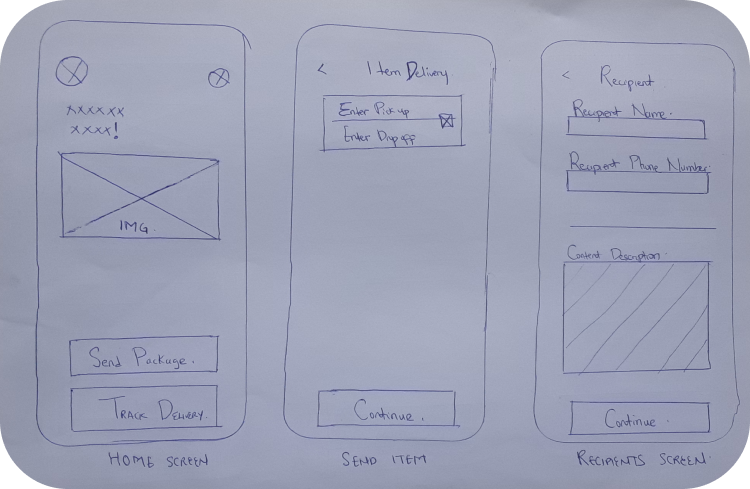 xxxxxx
xxxx!
IMG.
Send Package.
TRACK DELIVERY.
HOME SCREEN
< Item Delivery
Enter Pickup
Enter Dropoff
Continue.
SEND ITEM
< Recipient
Recipient Name.
Recipient Phone Number.
Content Description.
Continue.
RECIPIENTS SCREEN.